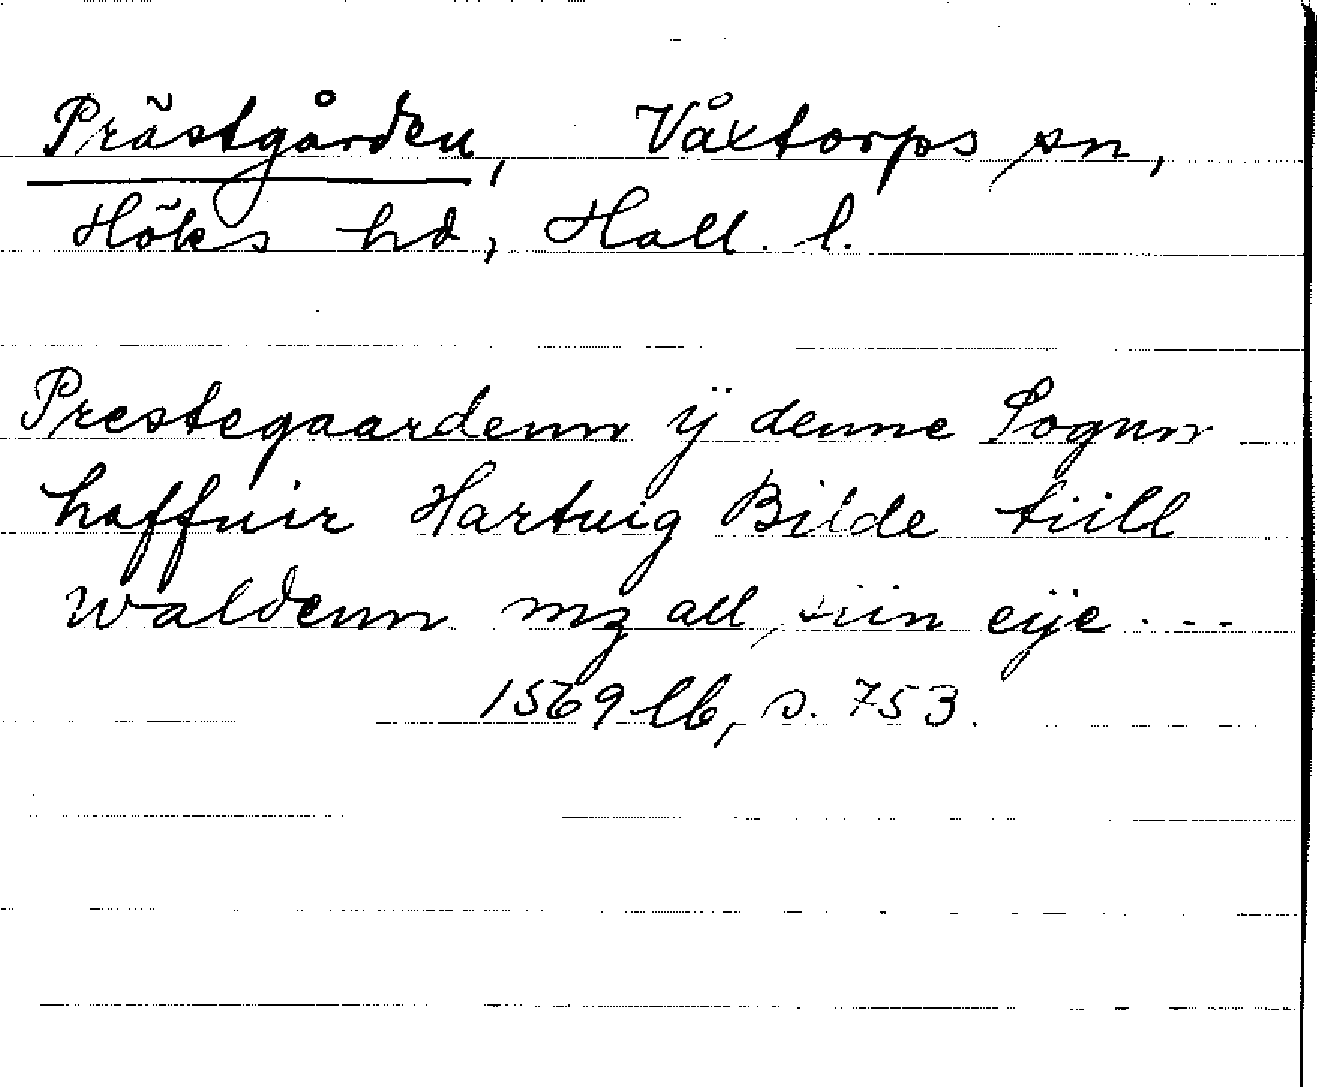 Prästgården, Våxtorps sn,
Höks hd, Hall. l.
Prestegaardenn ÿ denne Sognn
haffuir Hartuig Bilde tiill
Waldenn mz all siin eÿe ...
1569 lb, s. 753.